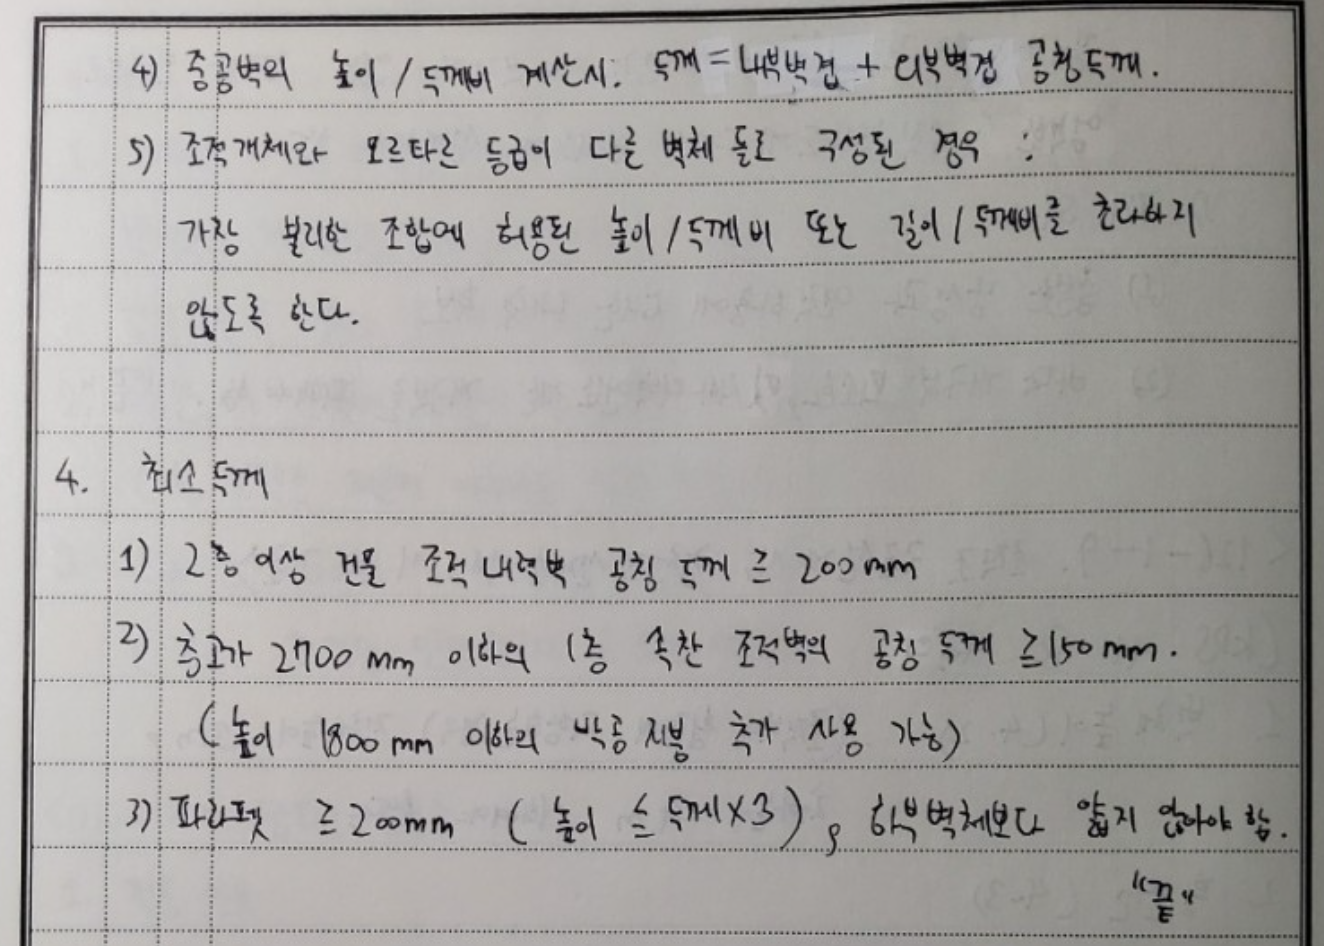 4) 중공벽의 높이 / 두께비 계산시. 두께 = 내부벽겹 + 외부벽겹 공칭두께.
5) 조적개체와 모르타르 등급이 다른 벽체 들로 구성된 경우 :
가장 불리한 조합에 허용된 높이 / 두께비 또는 길이 / 두께비를 초과하지
않도록 한다.
4. 최소두께
1) 2층 이상 건물 조적 내력벽 공칭 두께 ≥ 200mm
2) 층고가 2700 mm 이하의 1층 속찬 조적벽의 공칭 두께 ≥ 150 mm.
( 높이 1800 mm 이하의 박공 지붕 추가 사용 가능)
3) 파라펫 ≥ 200mm ( 높이 ≤ 두께×3 ), 하부벽체보다 얇지 않아야 함.
"끝"